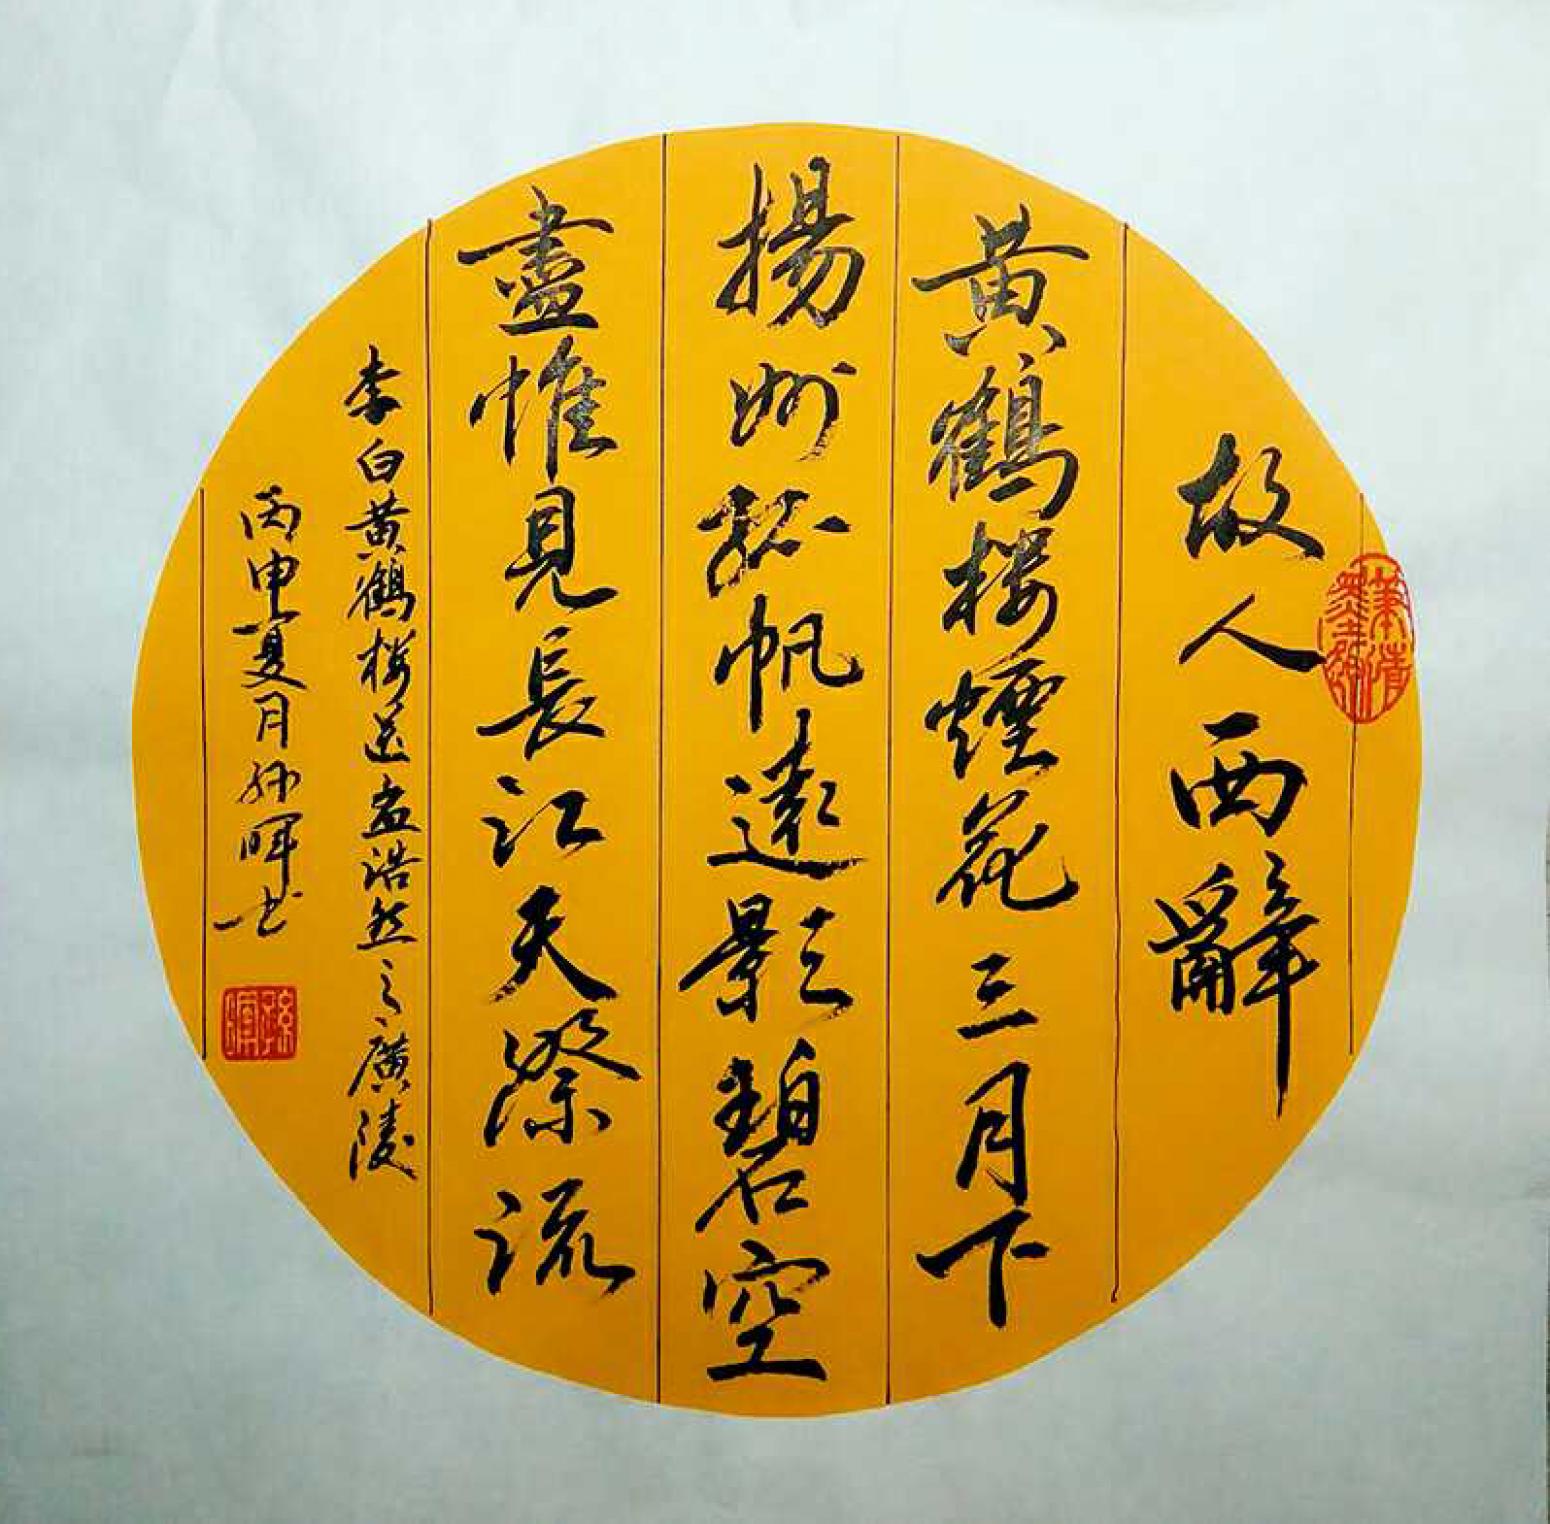 故人西辭
黄鶴楼煙花三月下
揚州孤帆遠影碧空
盡惟見長江天際流
李白黄鶴楼送孟浩然之廣陵
丙申夏月孫暉书
孫暉